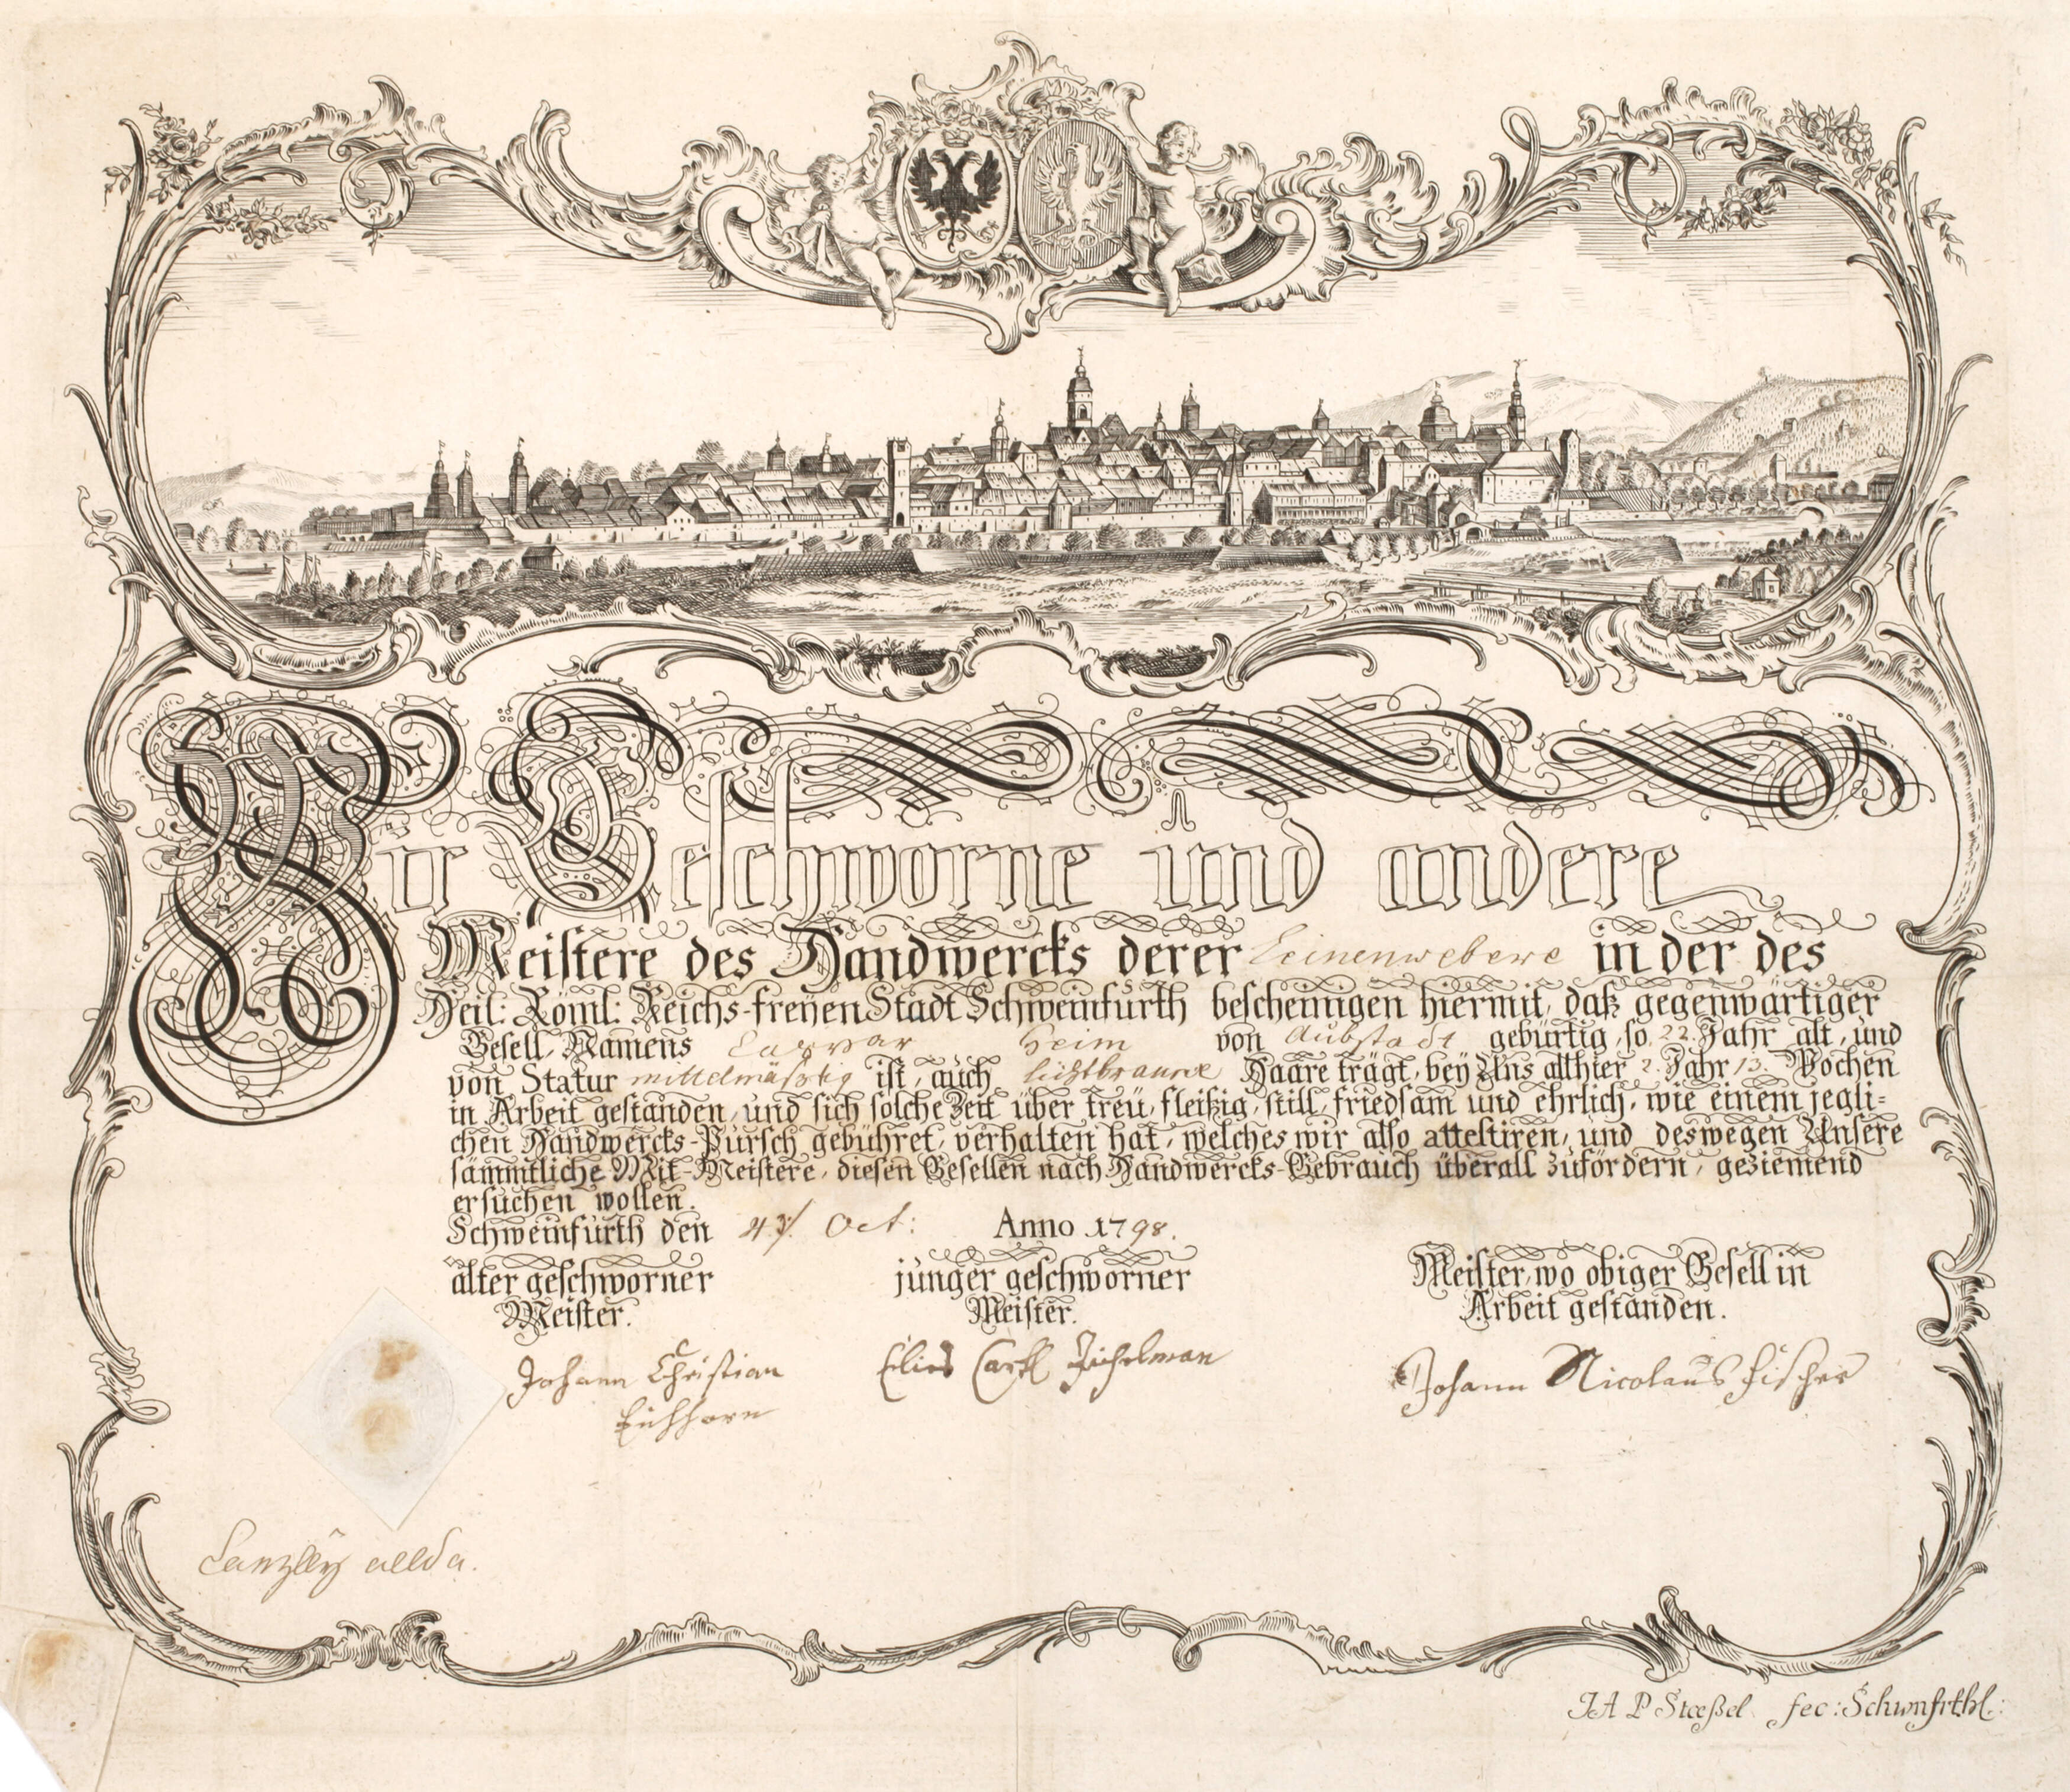 Wir Geschworne und andere
Meistere des Handwercks derer Leinenwebere in der des
Heil: Röml: Reichs-freÿen Stadt Schweinfurth bescheinigen hiermit, daß gegenwärtiger
Gesell, Namens Caspar Heim von Aubstadt gebürtig, so 22. Jahr alt, und
von Statur mittelmäßig ist, auch lichtbraune Haare trägt, beÿ Uns allhier 2. Jahr 13. Wochen
in Arbeit gestanden, und sich solche Zeit über treü, fleißig, still, friedsam und ehrlich, wie einem jegli-
chen Handwercks-Pursch gebühret, verhalten hat, welches wir also attestiren, und deswegen Unsere
sämmtliche Mit-Meistere, diesen Gesellen nach Handwercks-Gebrauch überall zufördern, geziemend
ersuchen wollen.
Schweinfurth den Oct: Anno 1798.
alter geschworner junger geschworner Meister, wo obiger Gesell in
Meister. Meister. Arbeit gestanden.
Johann Christian Elias Carl Johann Nicolaus Fischer
Eichhorn
Canzleÿ allda.
J A P Stœßel fec: Schwnfrthl: